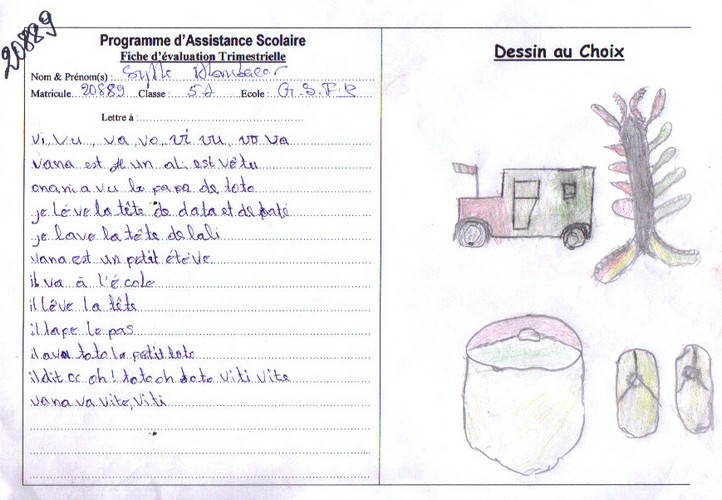 20889
Programme d'Assistance Scolaire
Fiche d'évaluation Trimestrielle
Nom & Prénom(s) : Sylla
Matricule 20889 Classe : 5 Ecole : G.S.P.R
Lettre à :
vi, vu, va, vo, vi vu, vo va
vana est un ali est vêtu
a vu le papa de toto
je léve la tête de data et de
je lave la tête de lali
vana est un petit éléve
il va à l'école
il léve la tête
il tape le pas
il a toto le petit toto
il dit cc oh! toto oh toto viti vite
vana va vite, viti
Dessin au Choix